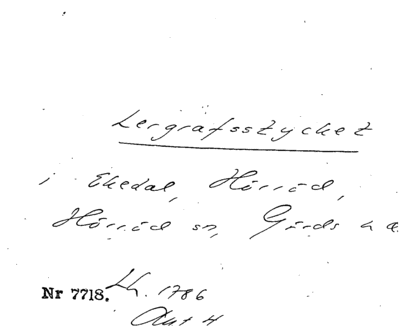 Lergrafsstycket
i Ekedal, Hörröd,
Hörröd sn, Gärds hä
Nr 7718. Lh. 1786
Akt 4